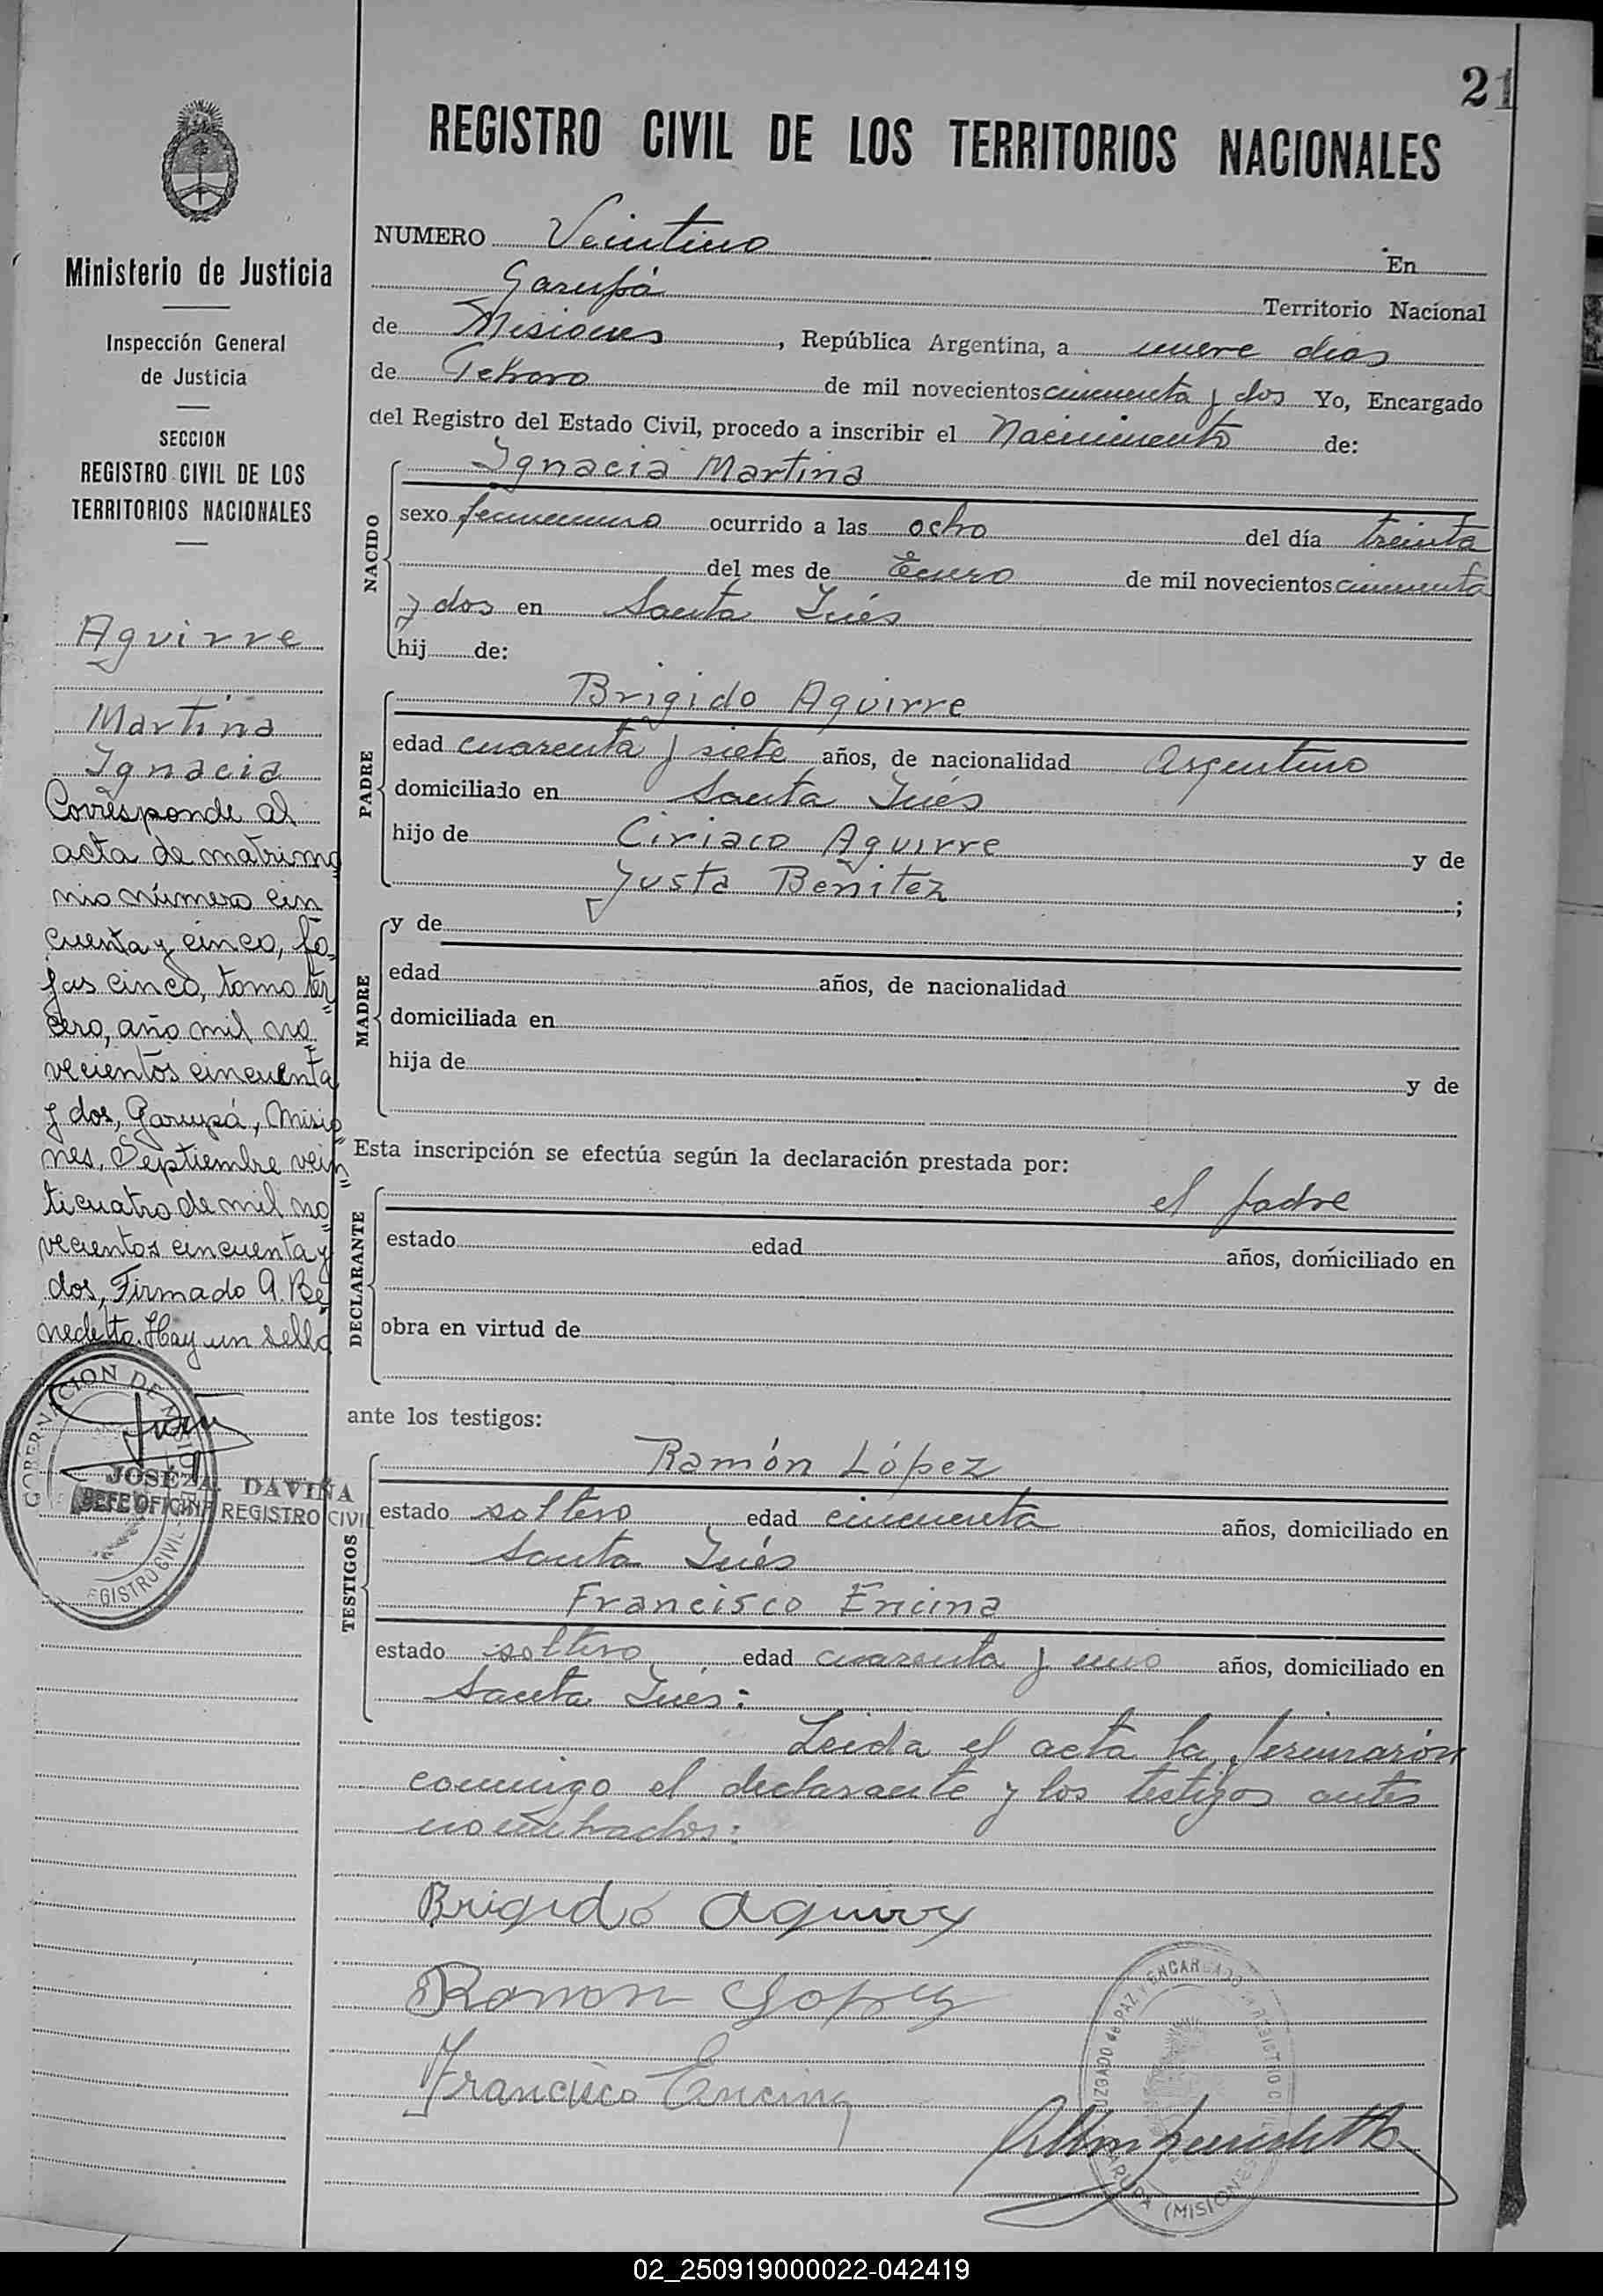 21
REGISTRO CIVIL DE LOS TERRITORIOS NACIONALES
NUMERO Veintiuno En
Garupá Territorio Nacional
de Misiones, República Argentina, a nueve dias
de Febrero de mil novecientos cincuenta y dos Yo, Encargado
del Registro del Estado Civil, procedo a inscribir el Nacimiento de:
NACIDO
Ignacia Martina
sexo femenino ocurrido a las ocho del día treinta
del mes de Enero de mil novecientos cincuenta
y dos en Santa Inés
hij de:
PADRE
Brigido Aguirre
edad cuarenta y siete años, de nacionalidad Argentino
domiciliado en Santa Inés
hijo de Ciriaco Aguirre y de
Justa Benitez ;
MADRE
y de
edad años, de nacionalidad
domiciliada en
hija de y de
Esta inscripción se efectúa según la declaración prestada por:
DECLARANTE
el padre
estado edad años, domiciliado en
obra en virtud de
ante los testigos:
TESTIGOS
Ramón López
estado soltero edad cincuenta años, domiciliado en
Santa Inés
Francisco Encina
estado soltero edad cuarenta y uno años, domiciliado en
Santa Inés:
Leida el acta la firmarón
conmigo el declarante y los testigos antes
nombrados:
Brigido Aguirre
Ramon Lopez
Francisco Encina
JUZGADO de PAZ Y ENCARGADO REGISTRO CIVIL
GARUPA (MISIONES)
Ministerio de Justicia
Inspección General
de Justicia
SECCION
REGISTRO CIVIL DE LOS
TERRITORIOS NACIONALES
Aguirre
Martina
Ignacia
Corresponde al
acta de matrimo
nio número cin
cuenta y cinco, fo
jas cinco, tomo ter
cero, año mil no
vecientos cincuenta
y dos, Garupá, Misio
nes, Septiembre vein
ticuatro de mil no
vecientos cincuenta y
dos, Firmado A. Be
nedetto. Hay un sello
GOBERNACION DE MISIONES
REGISTRO CIVIL
JOSÉ A. DAVIÑA
JEFE OFICINA REGISTRO CIVIL
02_250919000022-042419